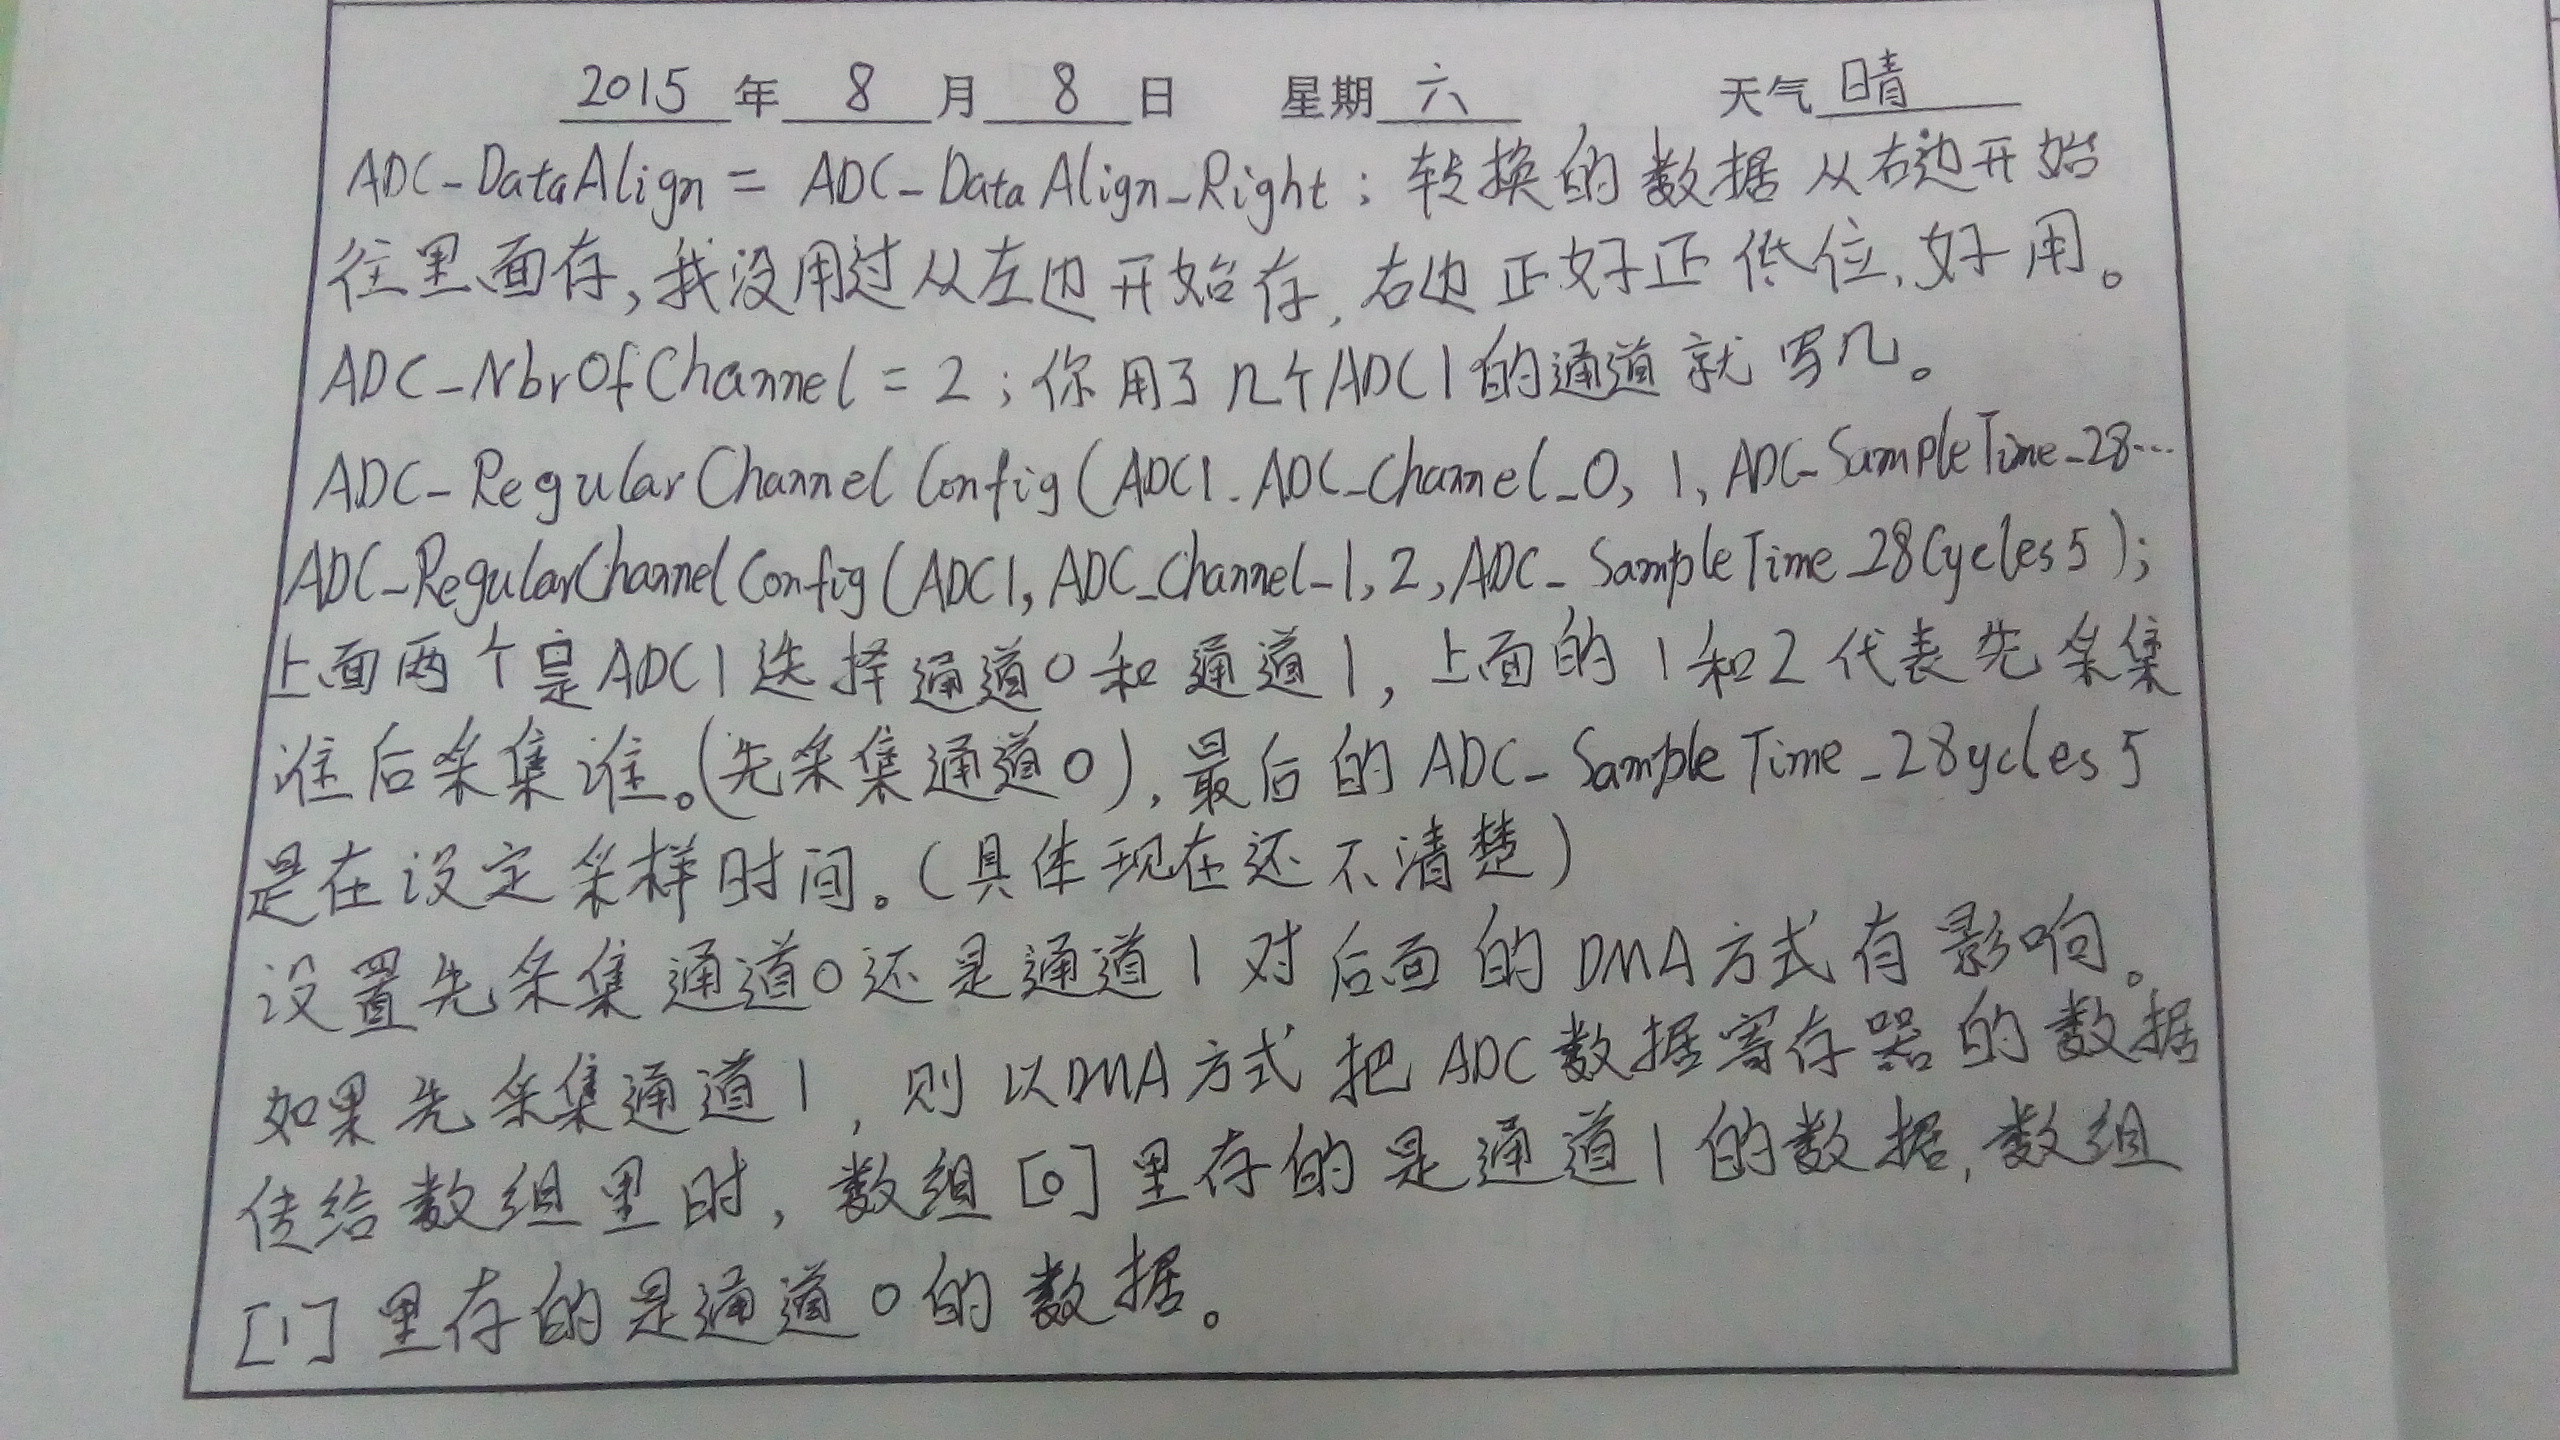 2015 年 8 月 8 日 星期 六 天气 晴
ADC-DataAlign = ADC-DataAlign-Right; 转换的数据从右边开始
往里面存,我没用过从左边开始存,右边正好正低位,好用。
ADC-NbrOfChannel = 2; 你用了几个ADC1的通道就写几。
ADC-RegularChannelConfig(ADC1.ADC-Channel-0, 1, ADC-SampleTime-28…
ADC-RegularChannelConfig(ADC1, ADC-Channel-1, 2, ADC-SampleTime-28Cycles5);
上面两个是ADC1选择通道0和通道1,上面的1和2代表先采集
谁后采集谁。(先采集通道0),最后的ADC-SampleTime-28ycles5
是在设定采样时间。(具体现在还不清楚)
设置先采集通道0还是通道1对后面的DMA方式有影响。
如果先采集通道1,则以DMA方式把ADC数据寄存器的数据
传给数组里时,数组[0]里存的是通道1的数据,数组
[1]里存的是通道0的数据。